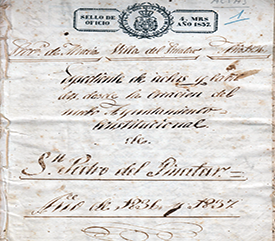 SELLO DE OFICIO
4. MRS AÑO 1837.
1
Prov.ª de Murcia Villa del Pinatar
Espediente de
da, desde la creacion del
Ayuntamiento
constitucional
de
S.n Pedro del Pinatar.
Año de 1836 y 1837